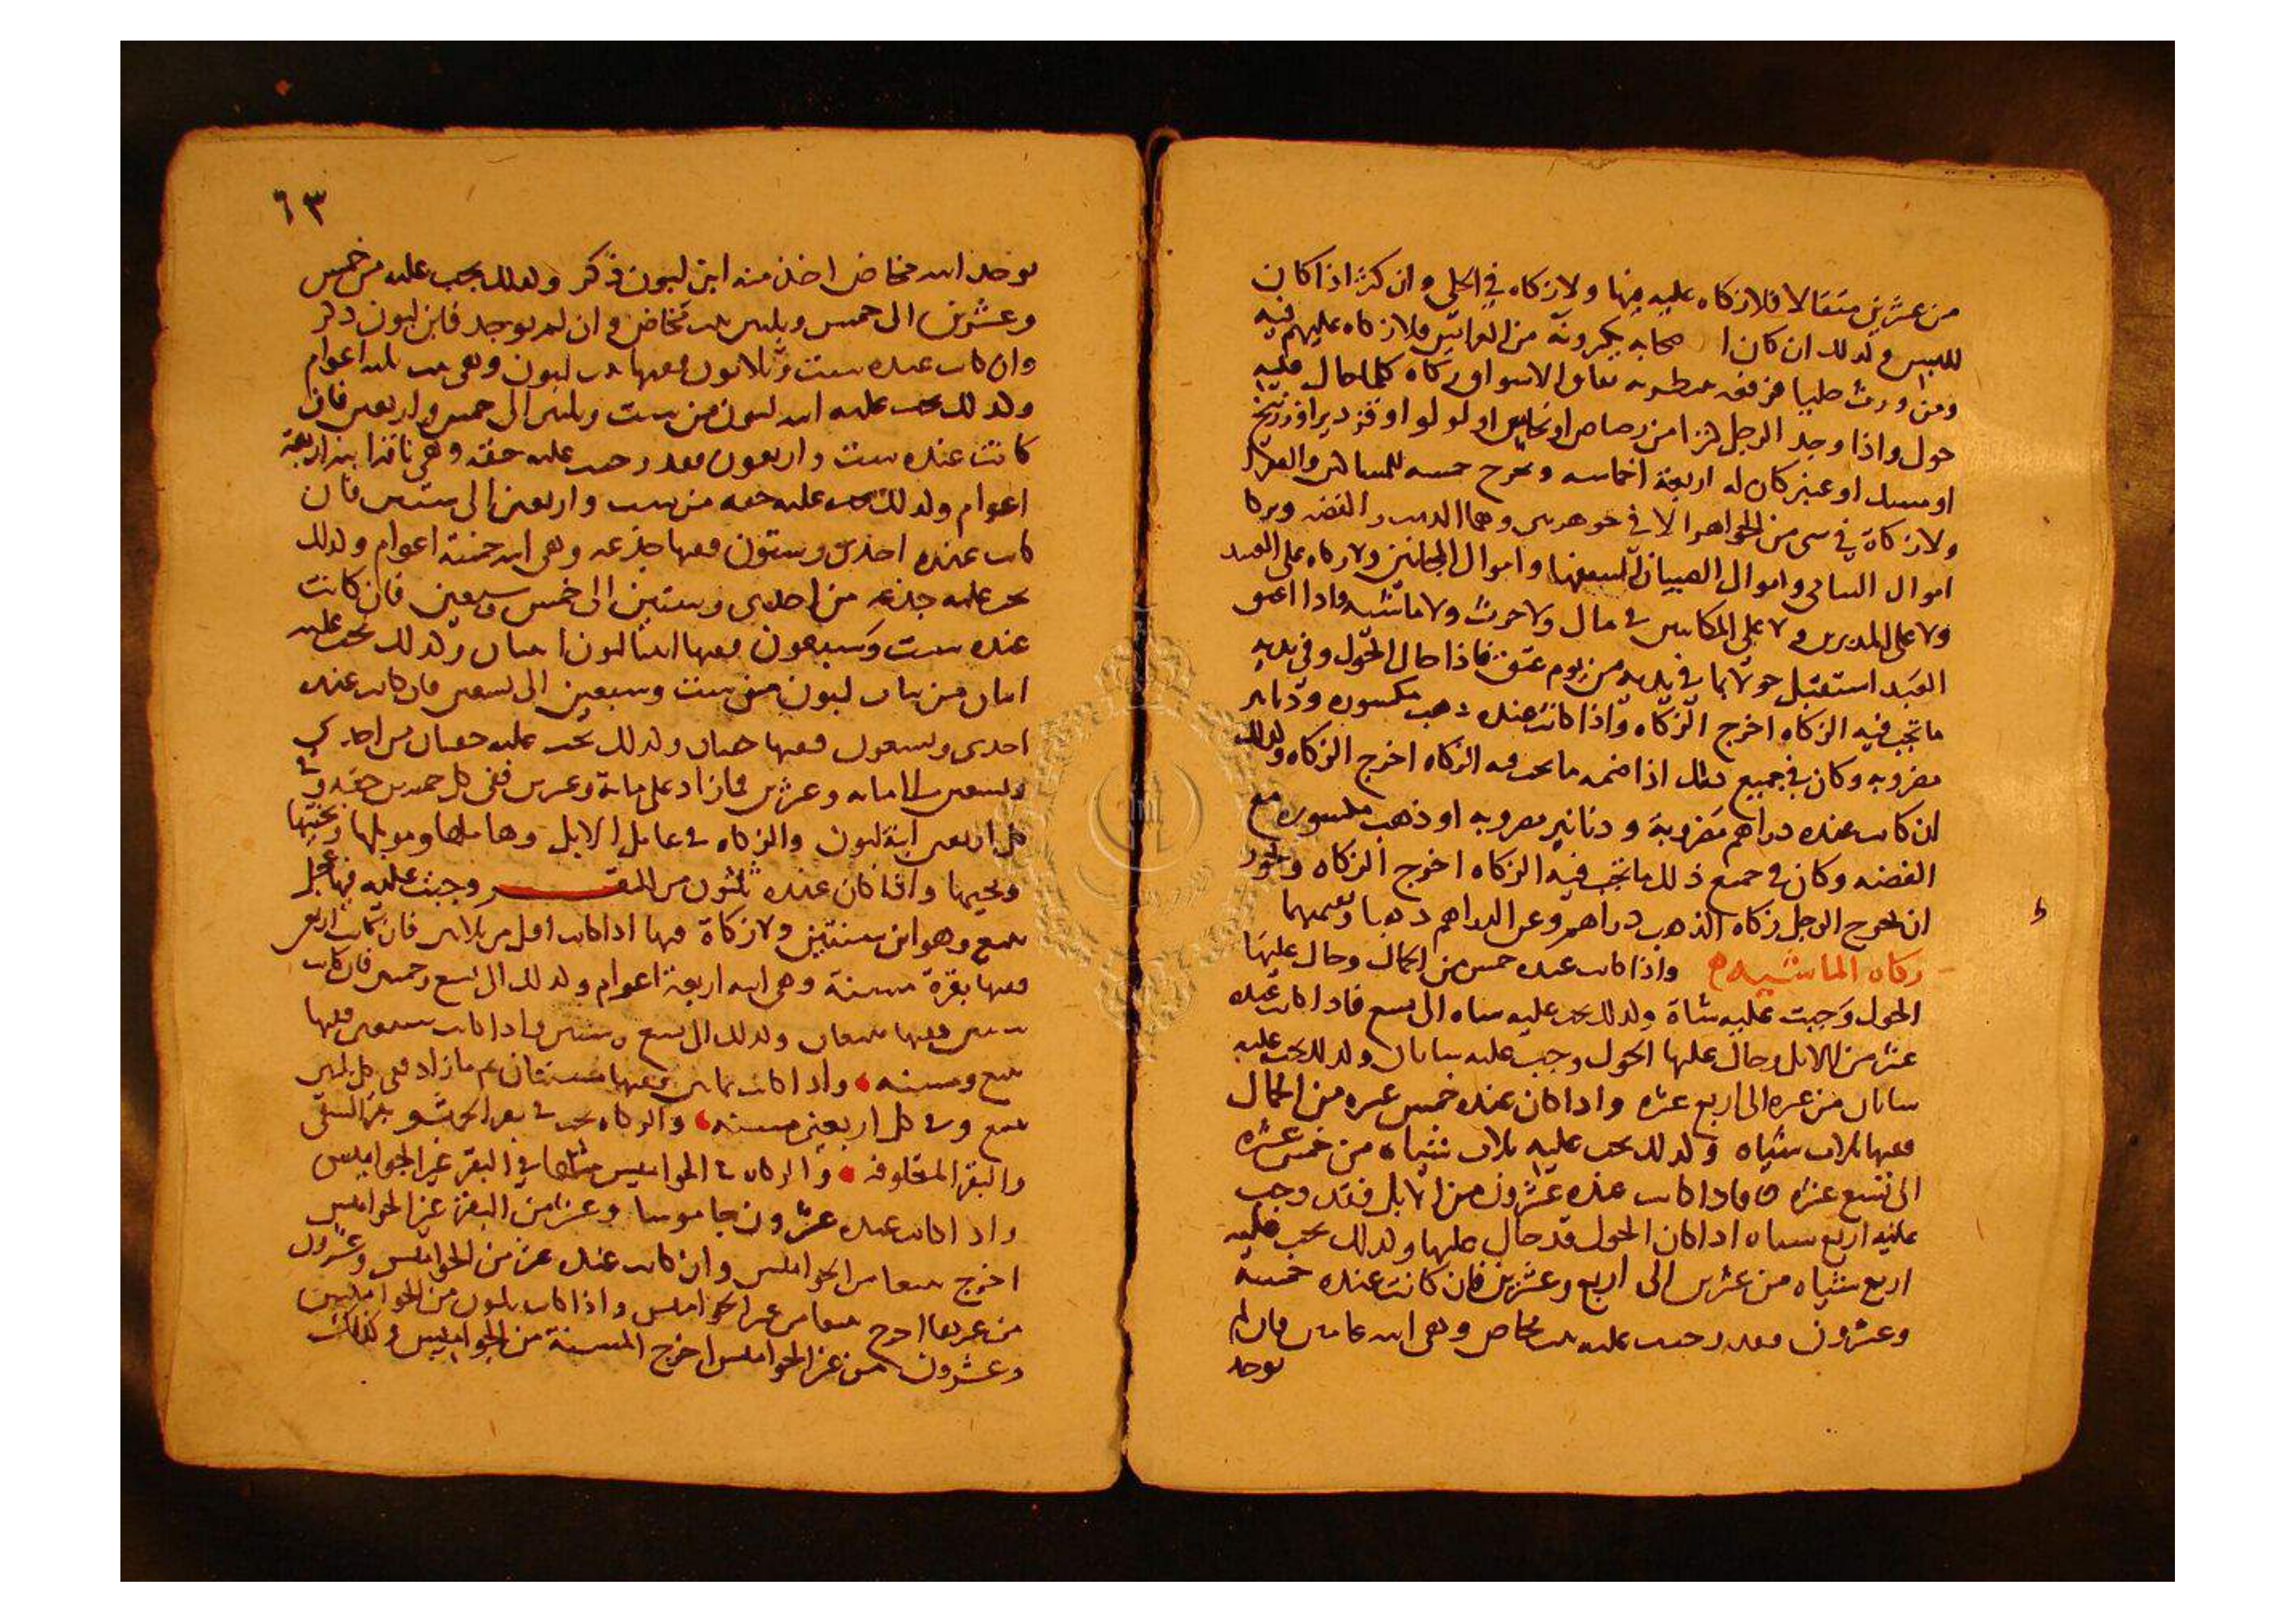 من عشرين مثقالا فلا زكاه عليه فيها ولا زكاه في الحلي وان كثر اذا كان
للبس وكذلك ان كان اصحابه يكرونه من العرائس فلا زكاه عليهم فيه
ومن ورث حليا
حول واذا وجد الرجل كنزا من رصاص او نحاس او لولو او قزدير او زرنيخ
او مسك او عنبر كان له اربعة اخماسه ويخرج خمسه للمساكين والفقرا
ولا زكاة في شي من الجواهر الا في جوهرين وهما الذهب والفضه ويزكا
اموال اليتامى واموال الصبيان السفها واموال المجانين ولا زكاه على العبيد
ولا على المدبرين ولا على المكاتبين في مال ولا حرث ولا ماشيه فاذا اعتق
العبد استقبل حولا بما في يديه من يوم عتق فاذا حال الحول وفي يديه
ما تجب فيه الزكاه اخرج الزكاه واذا كانت عنده ذهب مكسوره ودنانير
مضروبه وكان في جميع ذلك اذا ضمه ما تجب فيه الزكاه اخرج الزكاه وكذلك
ان كانت عنده دراهم مضروبة ودنانير مضروبه او ذهب مكسوره مع
الفضه وكان في جميع ذلك ما تجب فيه الزكاه اخرج الزكاه ويجوز
ان يخرج الرجل زكاه الذهب دراهم وعن الدراهم ذهبا
زكاه الماشيه واذا كانت عنده خمس من الجمال وحال عليها
الحول وجبت عليه شاة وكذلك تجب عليه شاه الى تسع فاذا كانت عنده
عشر من الابل وحال عليها الحول وجب عليه شاتان وكذلك تجب عليه
شاتان من عشره الى اربع عشره واذا كان عنده خمس عشره من الجمال
ففيها ثلاث شياه وكذلك تجب عليه ثلاث شياه من خمس عشره
الى تسع عشره فاذا كانت عنده عشرون من الابل فقد وجب
عليه اربع شياه اذا كان الحول قد حال عليها وكذلك تجب عليه
اربع شياه من عشرين الى اربع وعشرين فان كانت عنده خمسة
وعشرون فقد وجبت عليه بنت مخاض وهي ابنه عامين فان لم
توجد
٦٣
توجد ابنه مخاض اخذ منه ابن لبون ذكر وكذلك يجب عليه من خمس
وعشرين الى خمس وثلثين بنت مخاض وان لم يوجد فابن لبون ذكر
وان كانت عنده ست وثلاثون ففيها بنت لبون وهي بنت ثلثه اعوام
وكذلك تجب عليه ابنه لبون من ست وثلثين الى خمس واربعين فان
كانت عنده ست واربعون فقد وجبت عليه حقه وهي ناقة ابنه اربعة
اعوام وكذلك تجب عليه حقه من ست واربعين الى ستين فان
كانت عنده احدى وستون ففيها جذعه وهي ابنه خمسة اعوام وكذلك
تجب عليه جذعه من احدى وستين الى خمس وسبعين فان كانت
عنده ست وسبعون ففيها ابنتا لبون اثنتان وكذلك تجب عليه
اثنتان من بنات لبون من ست وسبعين الى تسعين فان كانت عنده
احدى وتسعون ففيها حقتان وكذلك تجب عليه حقتان من احدى
وتسعين الى مايه وعشرين فما زاد على ماية وعشرين ففي كل خمسين حقه وفي
كل اربعين ابنة لبون والزكاه في عامل الابل وهاملها وموبلها وبختيها
ونجيبها واذا كان عنده ثلثون من البقر وجبت عليه فيها عجل
تبيع وهو ابن سنتين ولا زكاة فيها اذا كانت اقل من ثلاثين فان كانت اربعين
ففيها بقرة مسنة وهي ابنه اربعة اعوام وكذلك الى تسع وخمسين فان كانت
ستين ففيها تبيعان وكذلك الى تسع وستين فاذا كانت سبعين ففيها
تبيع ومسنه واذا كانت ثمانين ففيها مسنتان ثم ما زاد ففي كل ثلثين
تبيع وفي كل اربعين مسنه والزكاه تجب في بقر الحرث وبقر السقي
والبقر المعلوفه والزكاه في الجواميس مثلها في البقر غير الجواميس
واذا كانت عنده عشرون جاموسا وعشرا من البقر غير الجواميس
اخرج تبيعا من الجواميس وان كانت عنده عشر من الجواميس وعشرون
من غيرها اخرج تبيعا من غير الجواميس واذا كانت ثلثون من الجواميس
وعشرون من غير الجواميس اخرج المسنة من الجواميس وكذلك